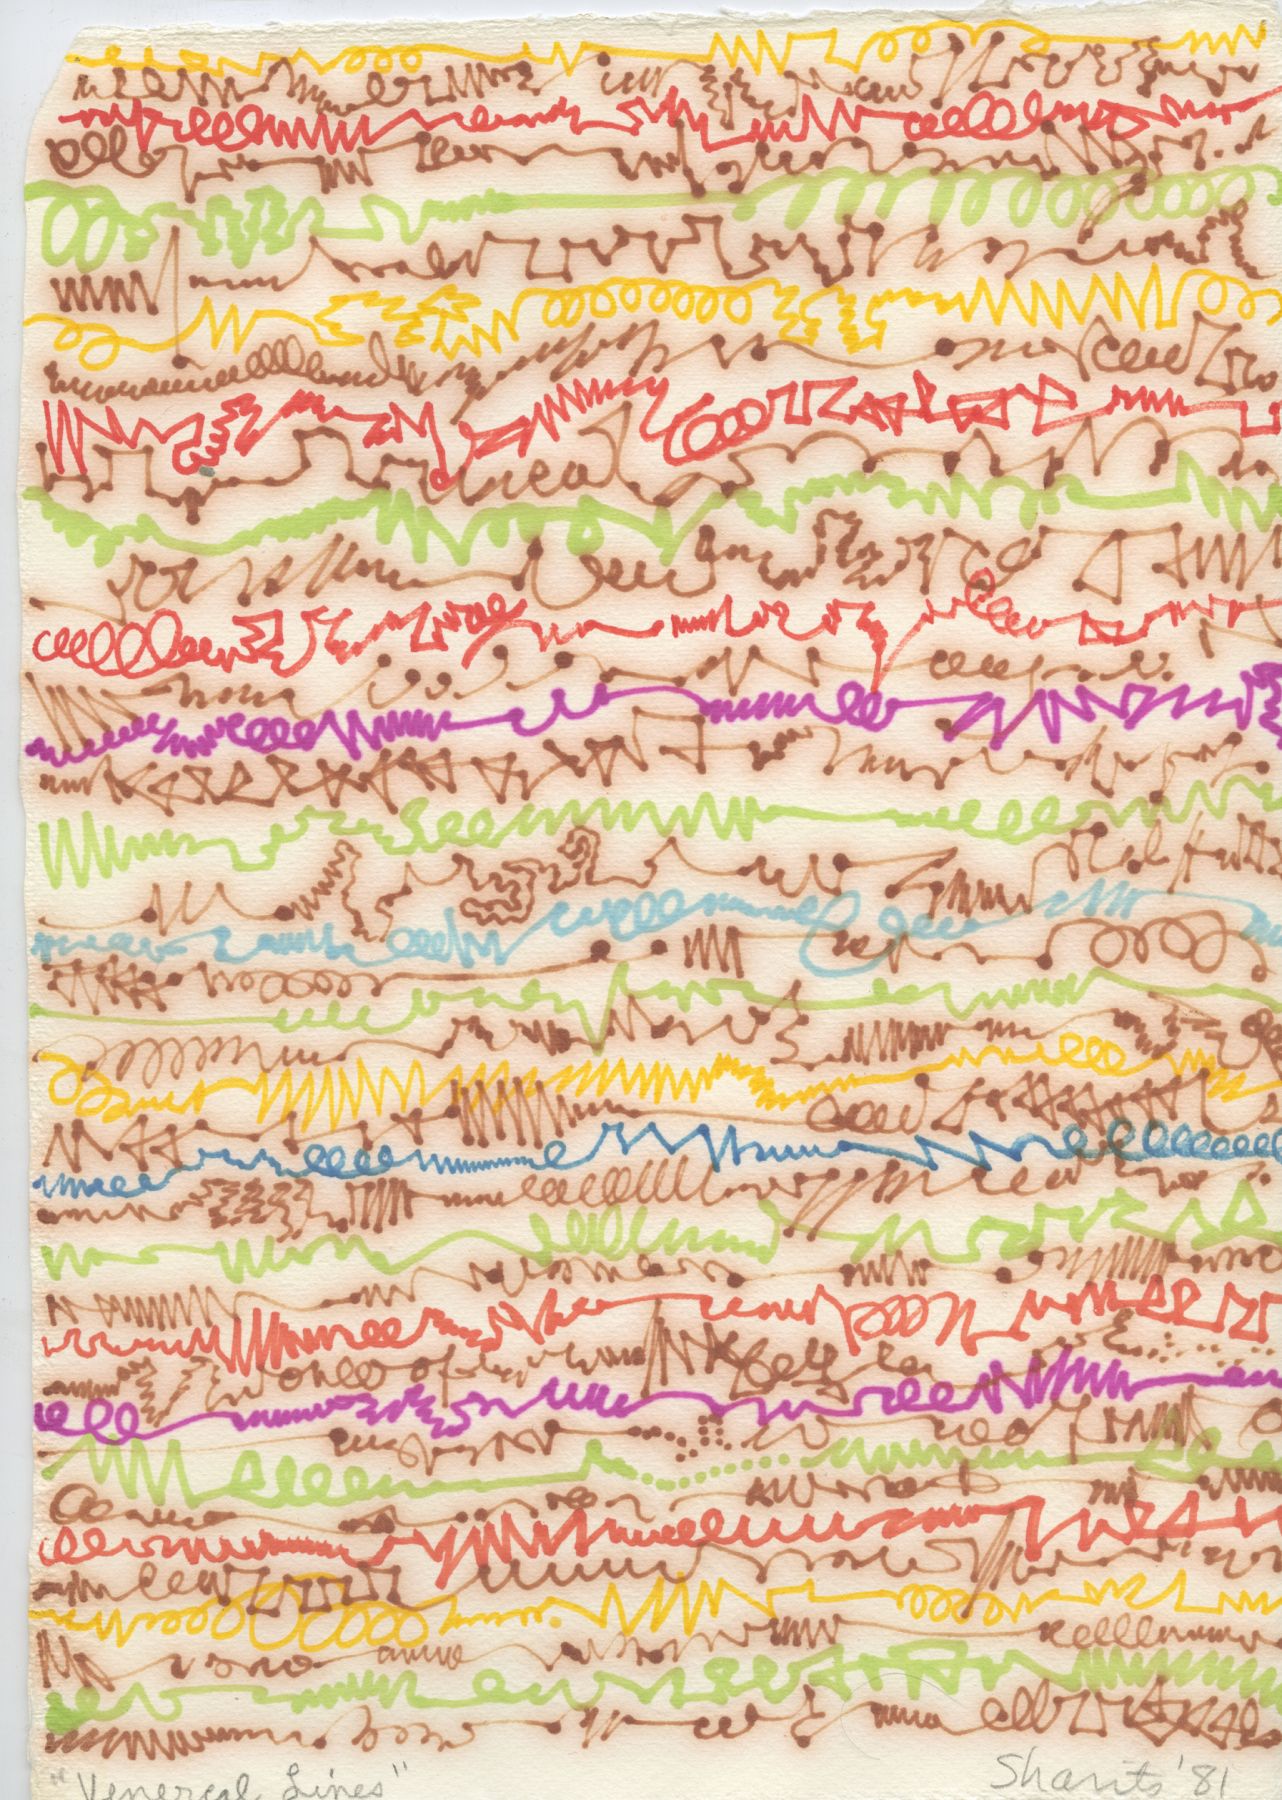 "Venereal Lines"
Sharits '81